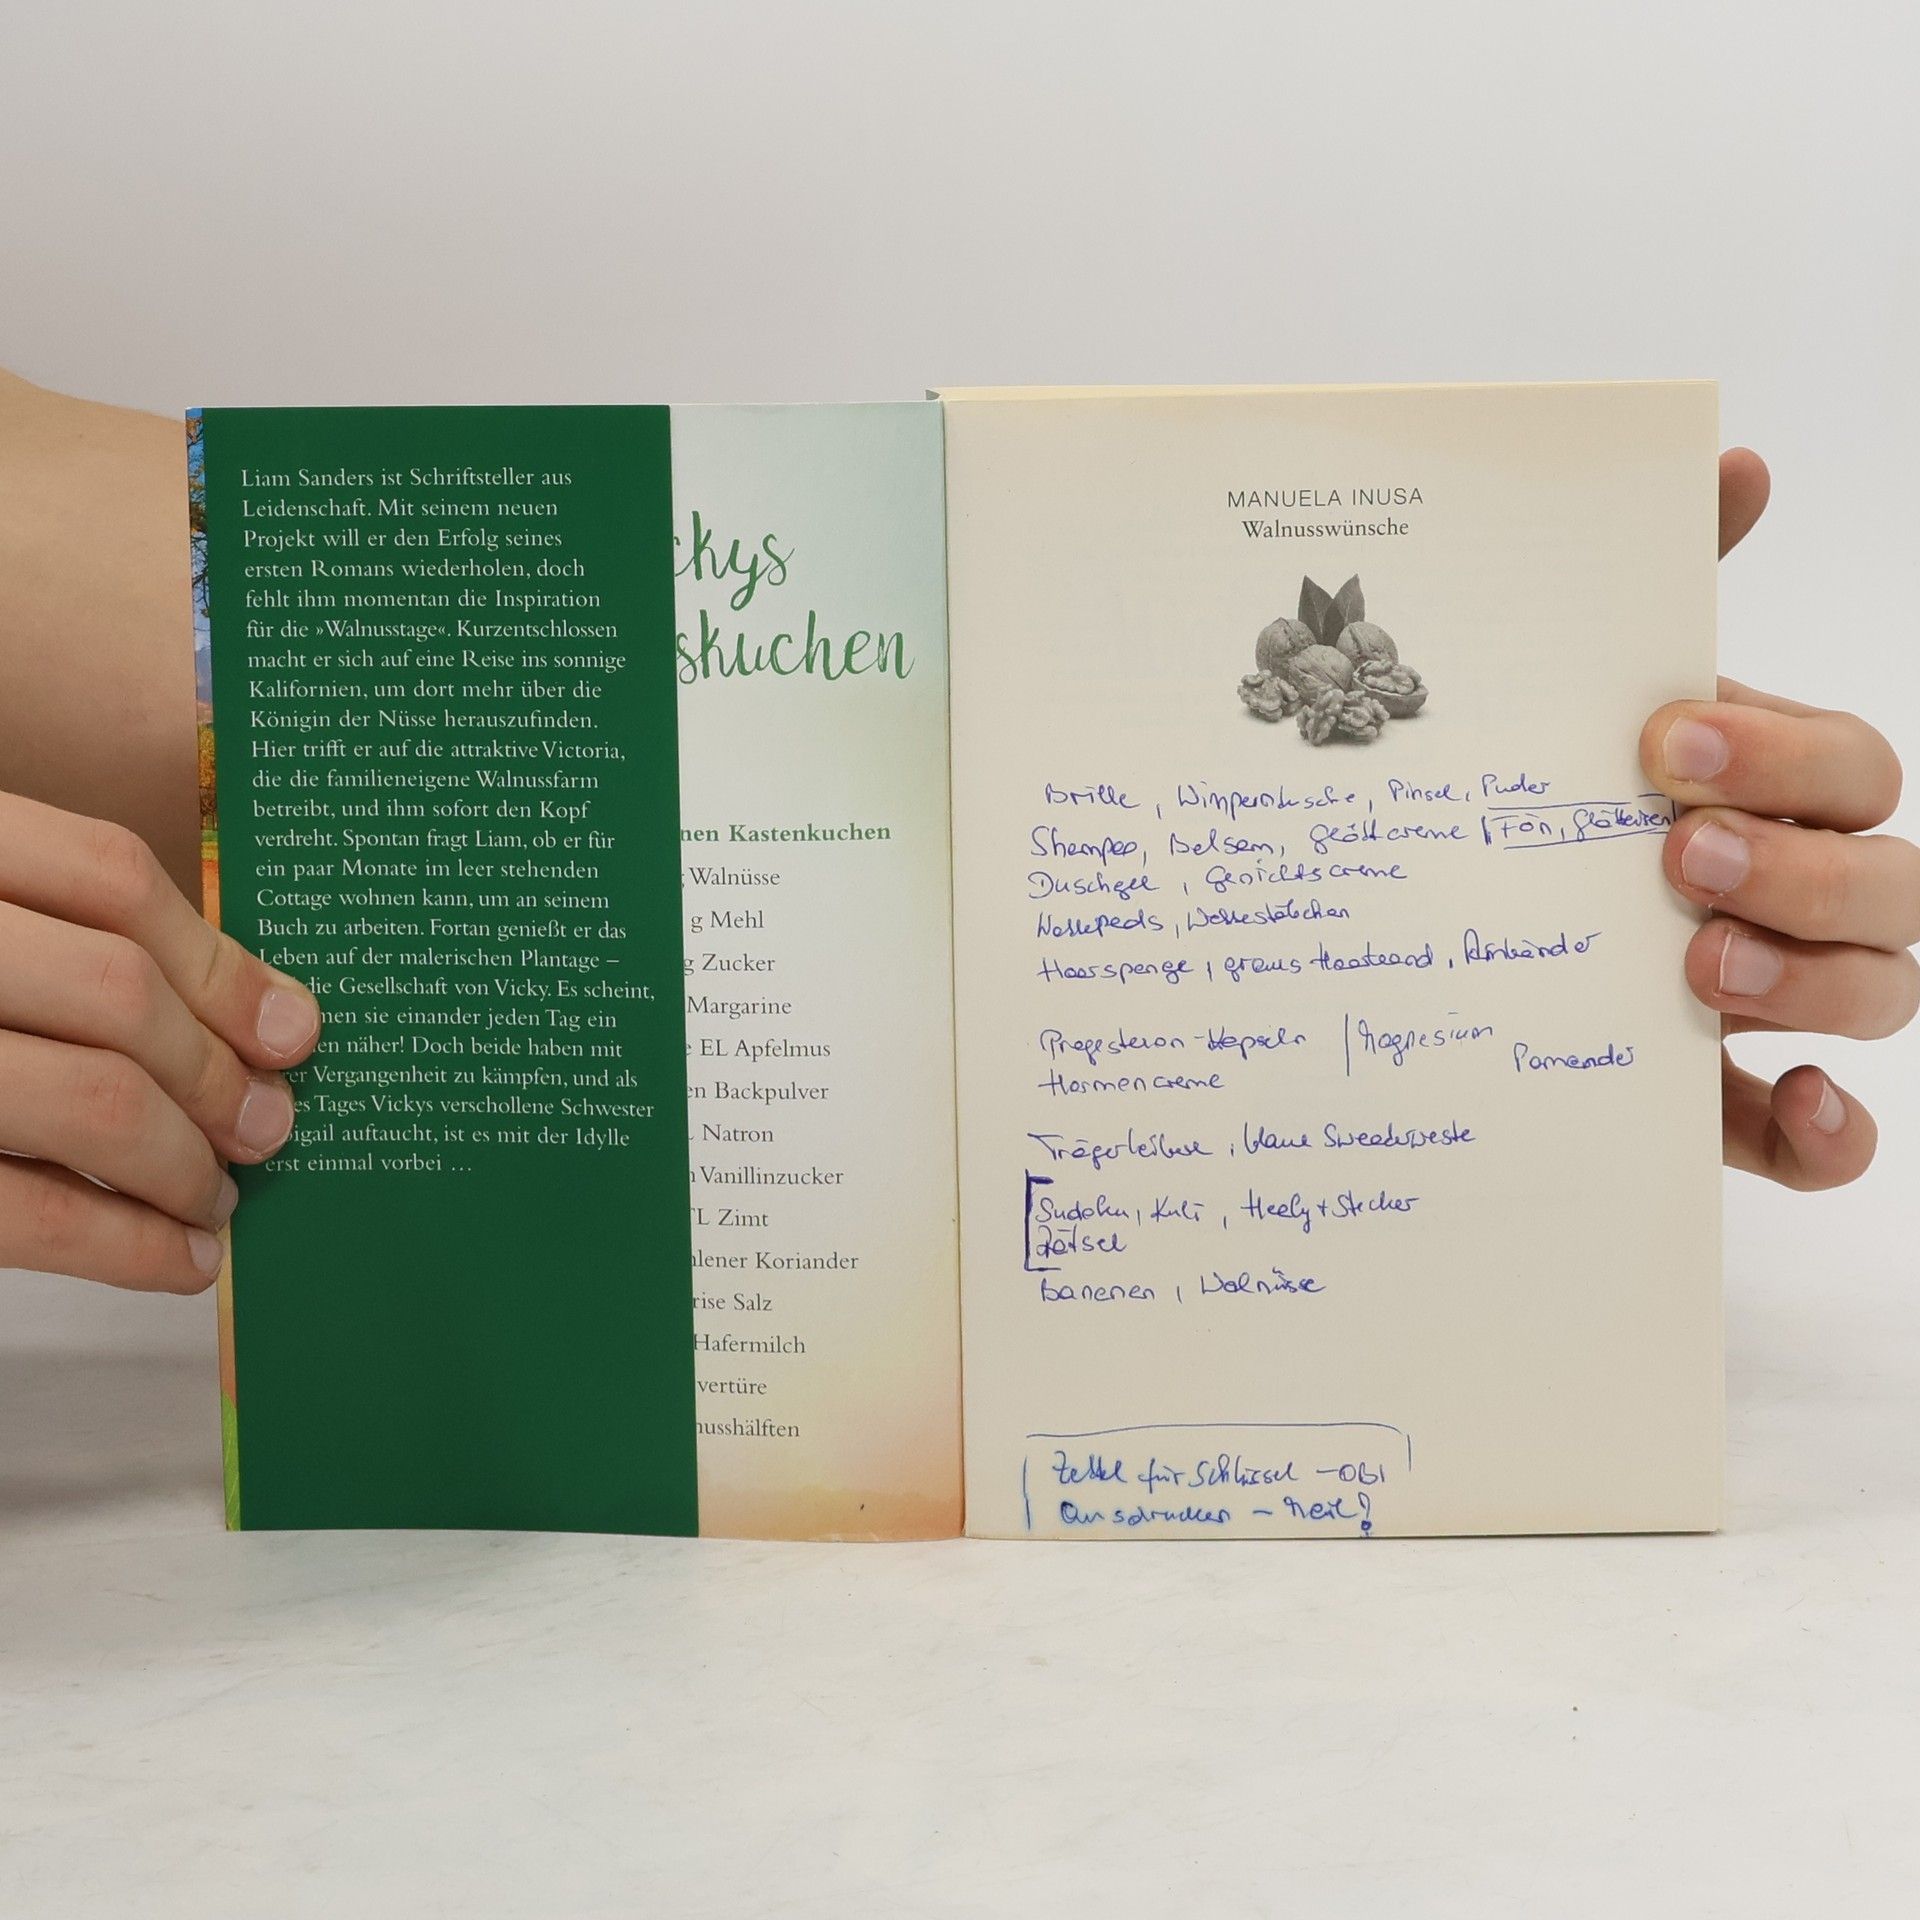 Liam Sanders ist Schriftsteller aus
Leidenschaft. Mit seinem neuen
Projekt will er den Erfolg seines
ersten Romans wiederholen, doch
fehlt ihm momentan die Inspiration
für die »Walnusstage«. Kurzentschlossen
macht er sich auf eine Reise ins sonnige
Kalifornien, um dort mehr über die
Königin der Nüsse herauszufinden.
Hier trifft er auf die attraktive Victoria,
die die familieneigene Walnussfarm
betreibt, und ihm sofort den Kopf
verdreht. Spontan fragt Liam, ob er für
ein paar Monate im leer stehenden
Cottage wohnen kann, um an seinem
Buch zu arbeiten. Fortan genießt er das
Leben auf der malerischen Plantage –
die Gesellschaft von Vicky. Es scheint,
men sie einander jeden Tag ein
en näher! Doch beide haben mit
rer Vergangenheit zu kämpfen, und als
es Tages Vickys verschollene Schwester
bigail auftaucht, ist es mit der Idylle
erst einmal vorbei …
ckys
skuchen
nen Kastenkuchen
g Walnüsse
g Mehl
g Zucker
Margarine
e EL Apfelmus
en Backpulver
Natron
Vanillinzucker
TL Zimt
hlener Koriander
rise Salz
Hafermilch
vertüre
nusshälften
MANUELA INUSA
Walnusswünsche
Brille, Wimperntusche, Pinsel, Puder
Shampoo, Balsam, Glättcreme | Fön, Glätteisen
Duschgel, Gesichtscreme
Wattepads, Wattestäbchen
Haarspange, graues Haarband,
Progesteron-Kapseln | Magnesium
Pomander
Hormoncreme
Trägerleiberl, blaue Sweaterweste
Sudoku, Kuli, Handy + Stecker
Rätsel
Bananen, Walnüsse
Zettel für Schlüssel – OBI
Ausdrucken – Mail!